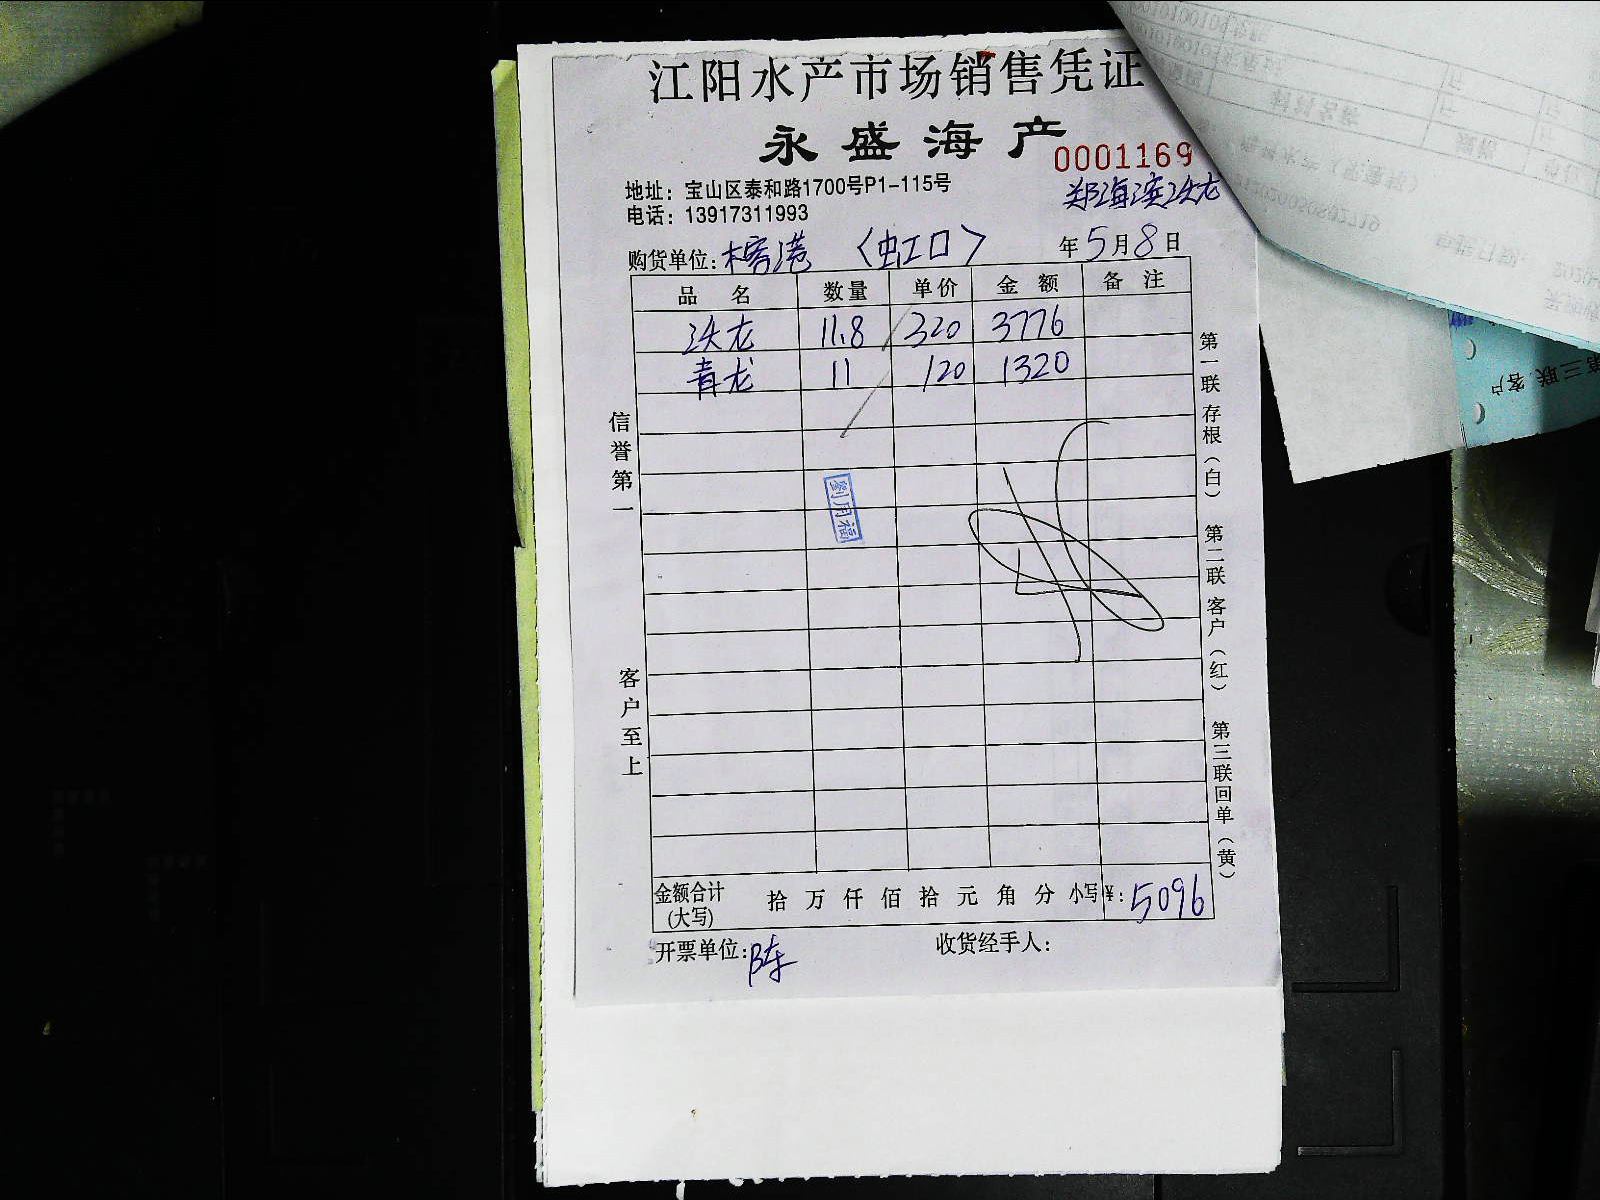 江阳水产市场销售凭证
永盛海产
0001169
地址：宝山区泰和路1700号P1-115号
郑海滨决龙
电话：13917311993
购货单位：榕港 〈虹口〉 年5月8日
品名 数量 单价 金额 备注
决龙 11.8 320 3776
青龙 11 120 1320
信誉第一
客户至上
劉用福
第一联存根（白） 第二联客户（红） 第三联回单（黄）
金额合计(大写) 拾 万 仟 佰 拾 元 角 分 小写¥：5096
开票单位：陈 收货经手人：
第三联 客户